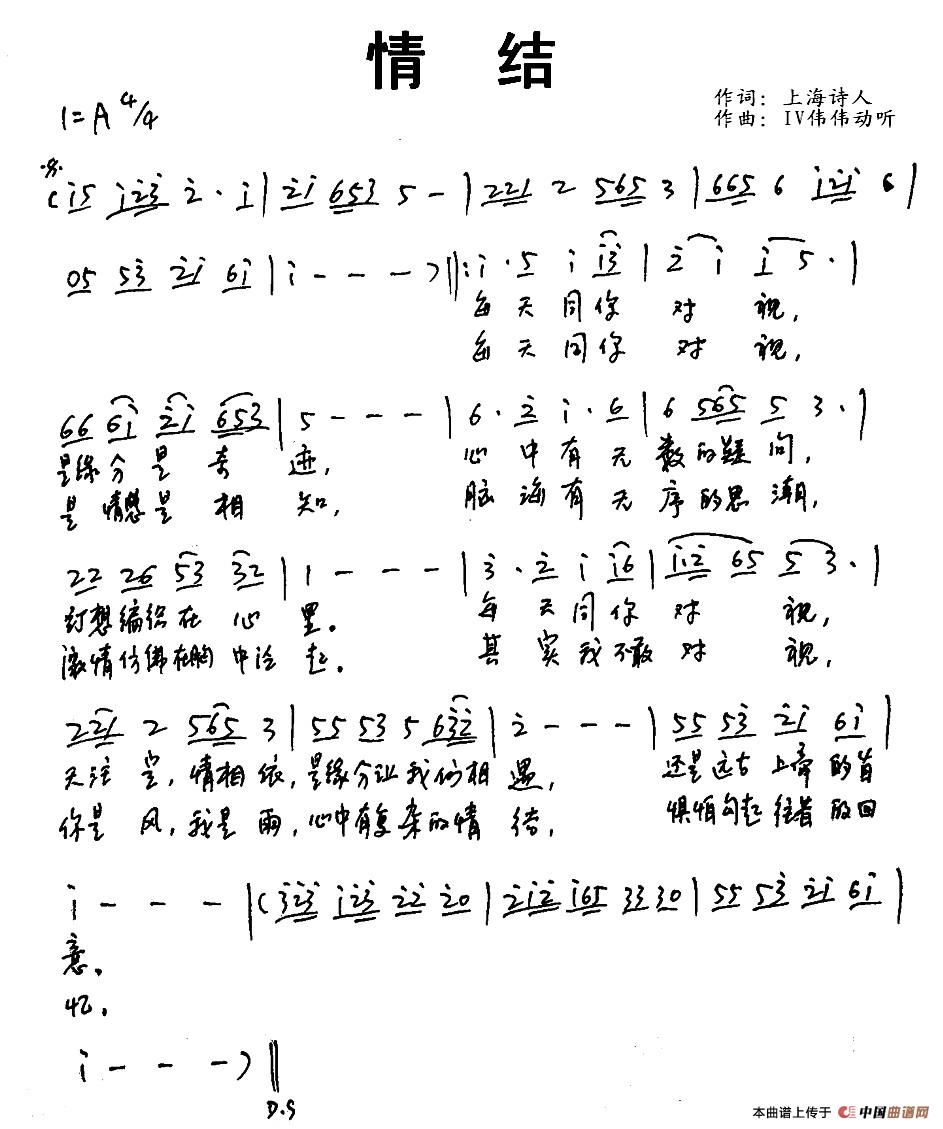 情 结
作词：上海诗人
作曲：IV伟伟动听
1=A 4/4
(i5 i23 2· i | 2i 653 5 - | 221 2 565 3 | 665 6 i2i 6 |
05 53 2i 6i | i - - - ) ‖: i · 5 i i3 | 2 i i 5 · |
每 天 同 你 对 视，
每 天 同 你 对 视，
66 6i 2i 653 | 5 - - - | 6 · 2 i · 6 | 6 565 5 3 · |
是缘 分 是 奇 迹， 心 中 有 无 数 的 疑 问，
是 情感 是 相 知， 脑 海 有 无 序 的 思 潮，
22 26 53 32 | 1 - - - | 3 · 2 i i6 | i2 65 5 3 · |
幻想 编织 在 心 里。 每 天 同 你 对 视，
激情 仿佛 在胸 中 起。 其 实 我 不敢 对 视，
221 2 565 3 | 55 53 5 632 | 2 - - - | 55 53 2i 6i |
天注 定，情相 依，是缘 分让 我 们相 遇， 还是 远古 上帝 的旨
你是 风，我是 雨，心中 有复 杂 的情 结， 惧怕 勾起 往昔 的回
i - - - | (323 i23 22 20 | 2i2 i65 33 30 | 55 53 2i 6i |
意。
忆。
i - - - ) ‖
D.S
本曲谱上传于 中国曲谱网